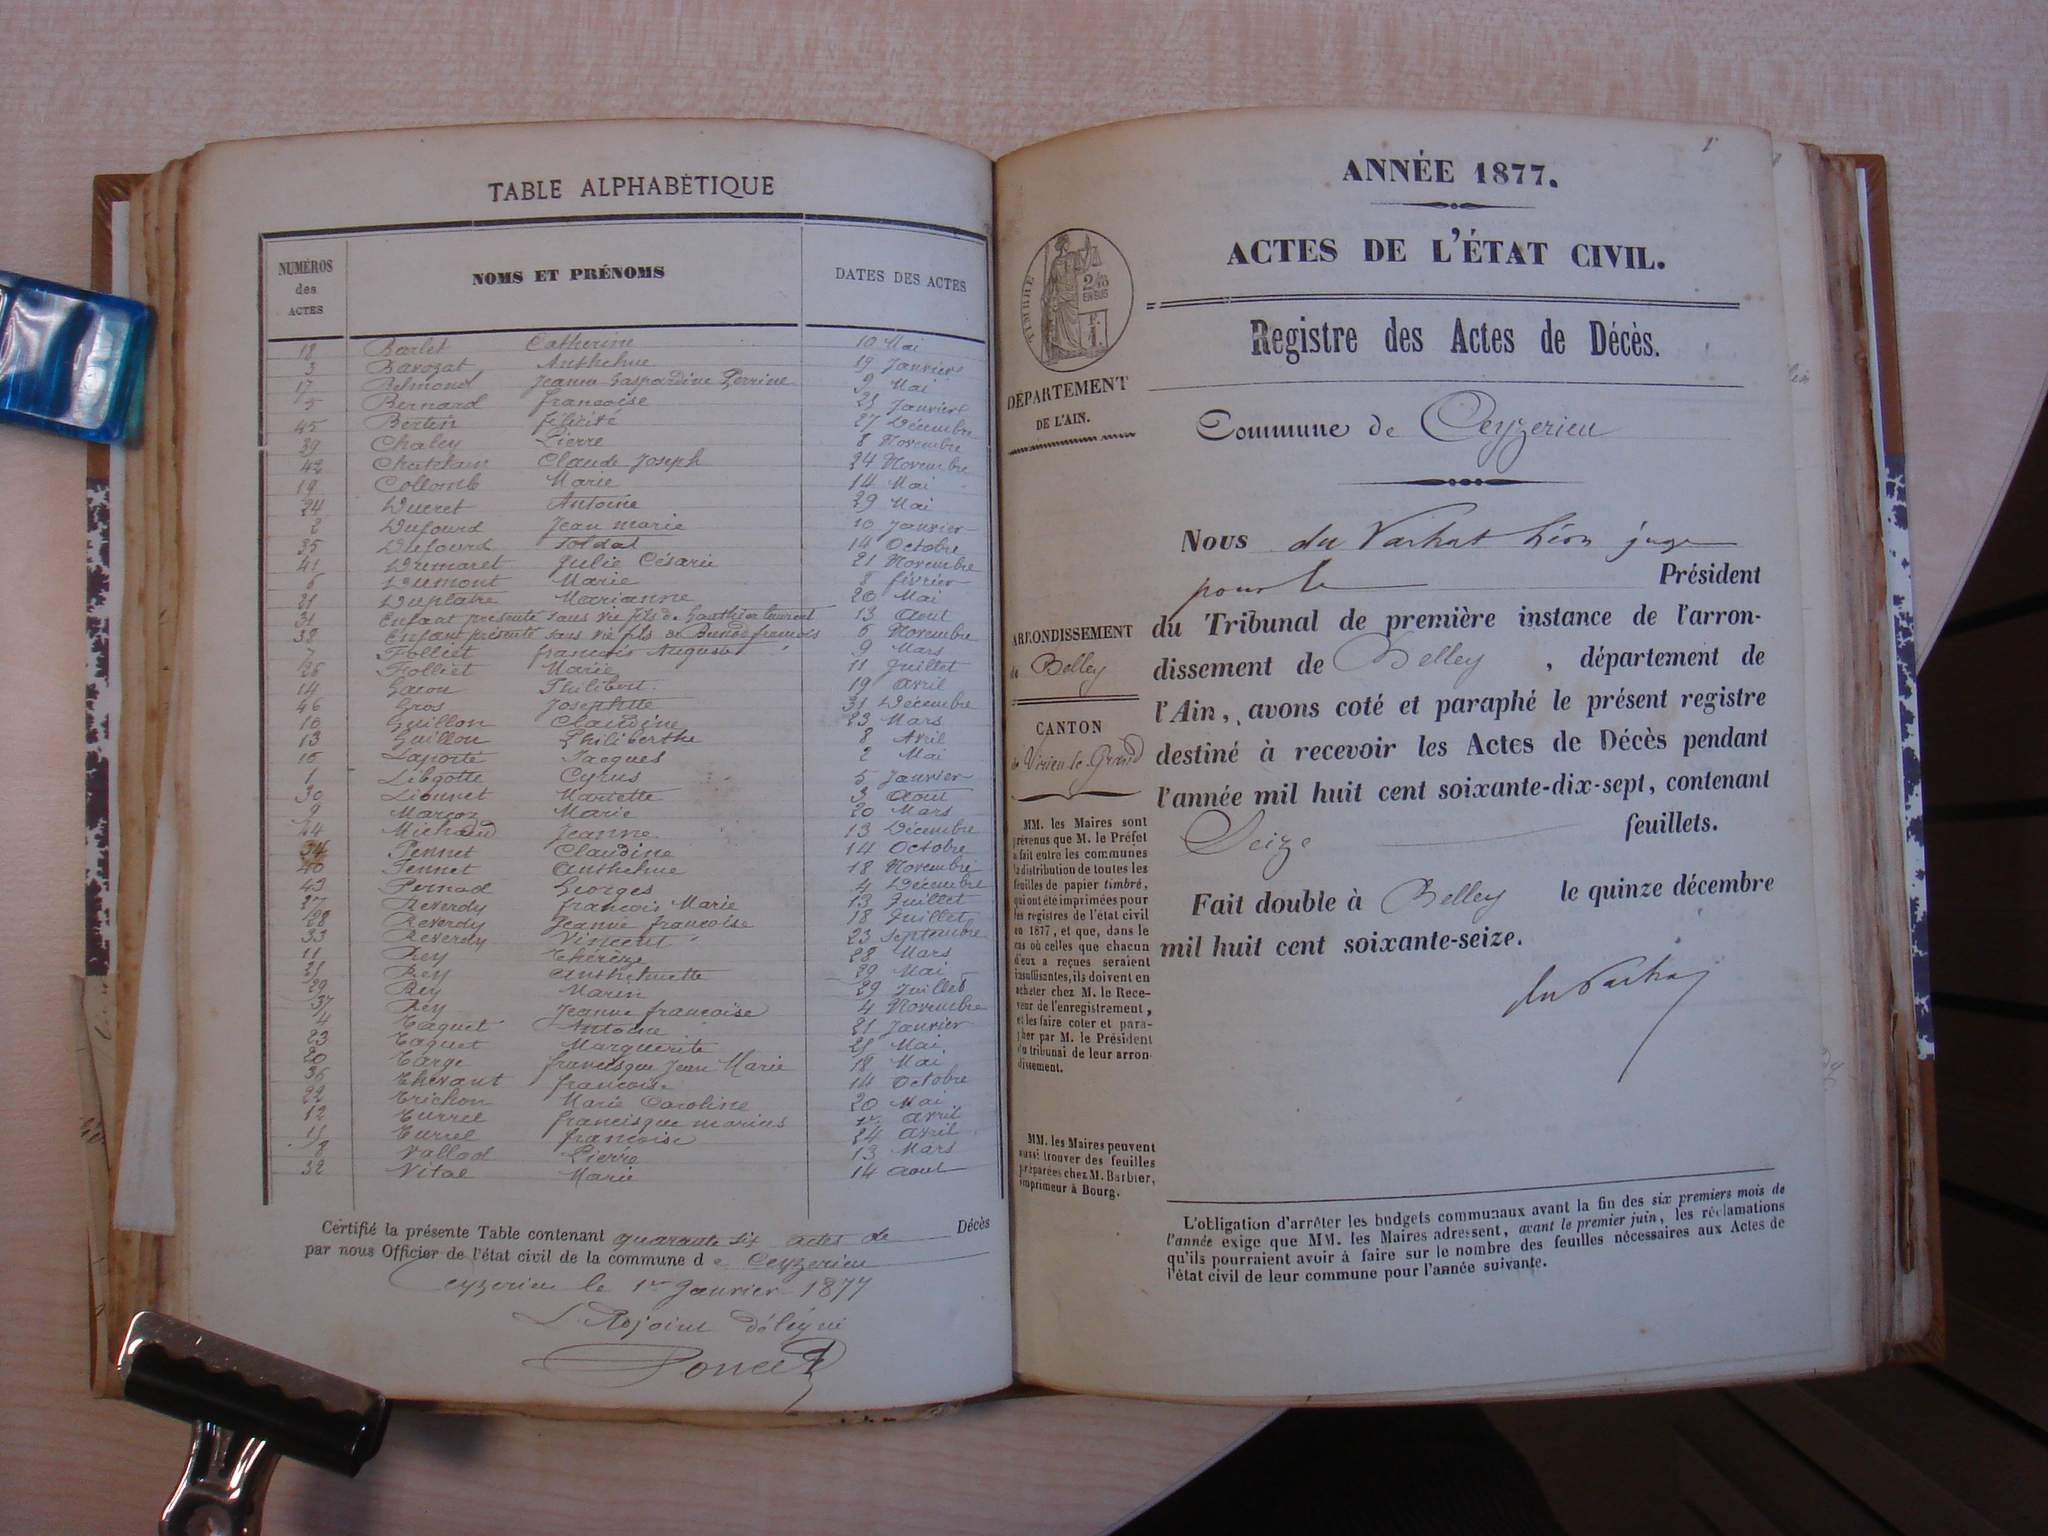 TABLE ALPHABÉTIQUE
NUMÉROS des ACTES NOMS ET PRÉNOMS DATES DES ACTES
18 Barlet Catherine 10 Mai
3 Barozat Anthelme 19 Janvier
17 Belmond Jeanne Gaspardine Perrine 9 Mai
5 Bernard françoise 25 Janvier
45 Bertin félicité 27 Décembre
39 Chaley Pierre 8 Novembre
42 Chatelain Claude Joseph 24 Novembre
19 Collomb Marie 14 Mai
24 Ducret Antoine 29 Mai
2 Dufourd Jean marie 10 Janvier
35 Dufourd soldat 14 Octobre
41 Dumaret Julie Césarie 21 Novembre
6 Dumont Marie 8 février
21 Duplatre Marianne 20 Mai
31 Enfant présenté sans vie fils de Gauthier laurent 13 Aout
38 Enfant présenté sans vie fils de françois 6 Novembre
7 Folliet françois Auguste 9 Mars
26 Folliet Marie 11 Juillet
14 Gacon Philibert 19 Avril
46 Gros Josephte 31 Décembre
10 Guillon Claudine 23 Mars
13 Guillon Philiberthe 8 Avril
16 Laporte Jacques 2 Mai
1 Libgotte Cyrus 5 Janvier
30 Lionnet Mariette 3 Aout
9 Marcoz Marie 20 Mars
44 Michaud Jeanne 13 Décembre
34 Pennet Claudine 14 Octobre
40 Pennet Anthelme 18 Novembre
43 Pernad Georges 4 Décembre
27 Reverdy françois Marie 13 Juillet
28 Reverdy Jeanne françoise 18 Juillet
33 Reverdy Vincent 23 Septembre
11 Rey Thérèze 28 Mars
25 Rey Anthelmette 29 Mai
29 Rey Marin 29 Juillet
37 Rey Jeanne françoise 4 Novembre
4 Taquet Antoine 21 Janvier
23 Taquet Marguerite 25 Mai
20 Targe francisque Jean Marie 18 Mai
36 Thévant françoise 14 Octobre
22 Trichon Marie Caroline 20 Mai
12 Turrel francisque marius 1er Avril
15 Turrel françoise 24 Avril
8 Vallod Pierre 13 Mars
32 Vital Marie 14 Aout
Certifié la présente Table contenant quarante six actes de Décès
par nous Officier de l'état civil de la commune de Ceyzerieu
Ceyzerieu le 1er Janvier 1877
L'Adjoint délégué
Poncet
1r
ANNÉE 1877.
ACTES DE L'ÉTAT CIVIL.
TIMBRE
2/10
EN SUS
F.
1.
Registre des Actes de Décès.
DÉPARTEMENT
DE L'AIN.
Commune de Ceyzerieu
Nous du Vachat Léon juge
pour le Président
du Tribunal de première instance de l'arron-
dissement de Belley, département de
l'Ain, avons coté et paraphé le présent registre
destiné à recevoir les Actes de Décès pendant
l'année mil huit cent soixante-dix-sept, contenant
Seize feuillets.
Fait double à Belley le quinze décembre
mil huit cent soixante-seize.
du Vachat
ARRONDISSEMENT
de Belley
CANTON
de Virieu le Grand
MM. les Maires sont
prévenus que M. le Préfet
a fait entre les communes
la distribution de toutes les
feuilles de papier timbré,
qui ont été imprimées pour
les registres de l'état civil
en 1877, et que, dans le
cas où celles que chacun
d'eux a reçues seraient
insuffisantes, ils doivent en
acheter chez M. le Rece-
veur de l'enregistrement,
et les faire coter et para-
pher par M. le Président
du tribunal de leur arron-
dissement.
MM. les Maires peuvent
aussi trouver des feuilles
préparées chez M. Barbier,
imprimeur à Bourg.
L'obligation d'arrêter les budgets communaux avant la fin des six premiers mois de
l'année exige que MM. les Maires adressent, avant le premier juin, les réclamations
qu'ils pourraient avoir à faire sur le nombre des feuilles nécessaires aux Actes de
l'état civil de leur commune pour l'année suivante.